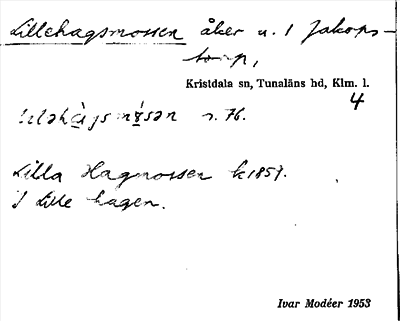 Lillehagsmossen åker u. 1 Jakops-
torp,
Kristdala sn, Tunaläns hd, Klm. l.
4
n. 76.
Lilla Hagmossen k 1857.
I Lille hagen.
Ivar Modéer 1953